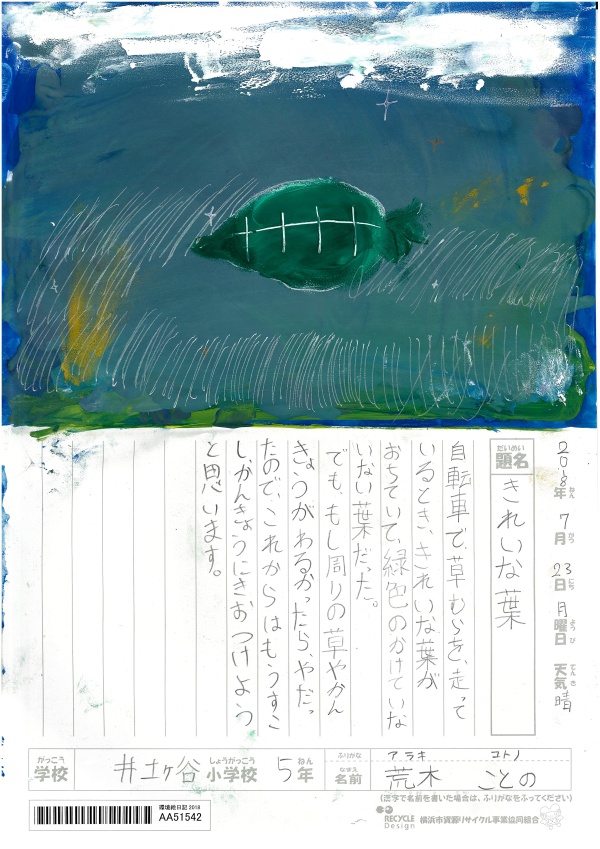 2018年ねん 7月がつ 23日にち 月曜日ようび 天気てんき 晴
題名だいめい
きれいな葉
自転車で草むらを、走って
いるとき、きれいな葉が
おちていて、緑色のかけていな
いない葉だった。
でも、もし周りの草やかん
きょうがわるかったら、やだっ
たので、これからはもうすこ
し、かんきょうにきおつけよう
と思います。
学校がっこう 井土ヶ谷 小学校しょうがっこう 5年ねん
ふりがな アラキ コトノ
名前なまえ 荒木 ことの
(漢字で名前を書いた場合は、ふりがなをふってください)
環境絵日記 2018
AA51542
RECYCLE Design
横浜市資源リサイクル事業協同組合